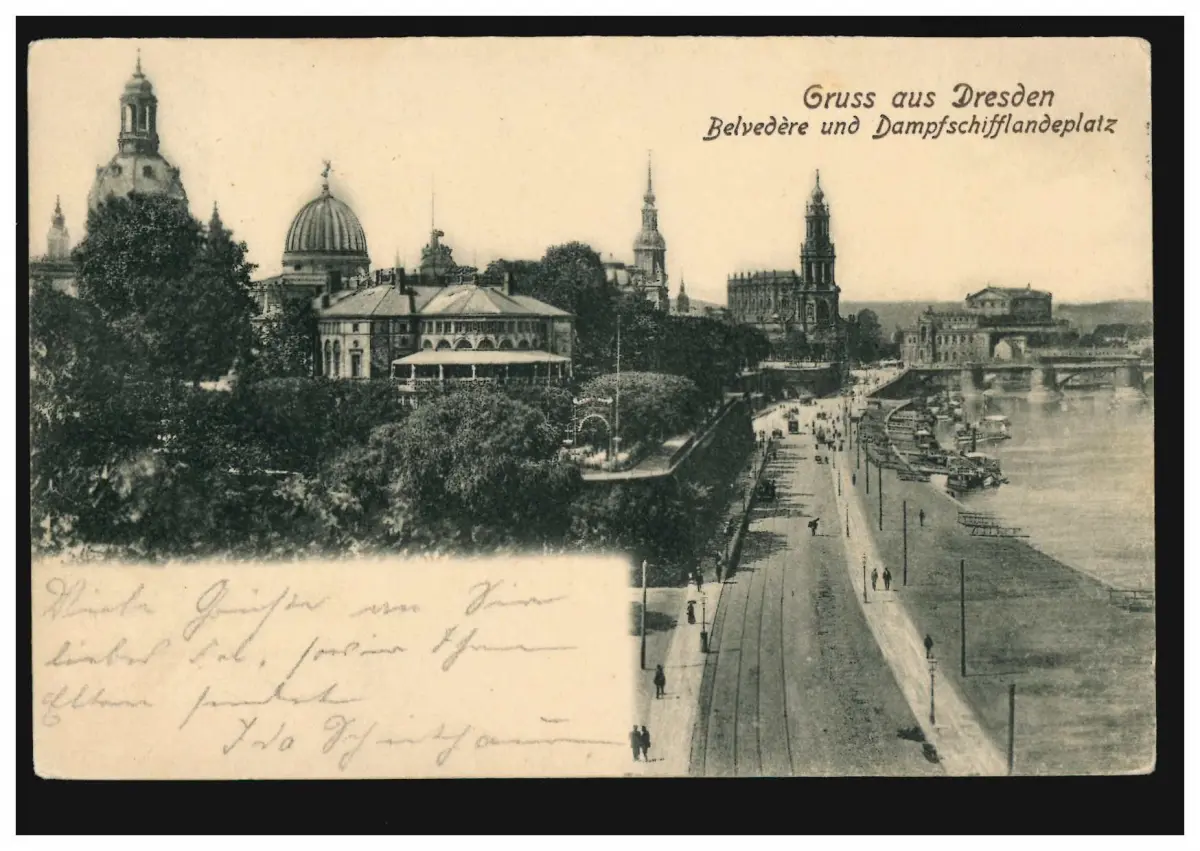 Gruss aus Dresden
Belvedère und Dampfschifflandeplatz
Viele Grüße an Sie
liebes Frl., sowie Ihren
Eltern sendet
Ida